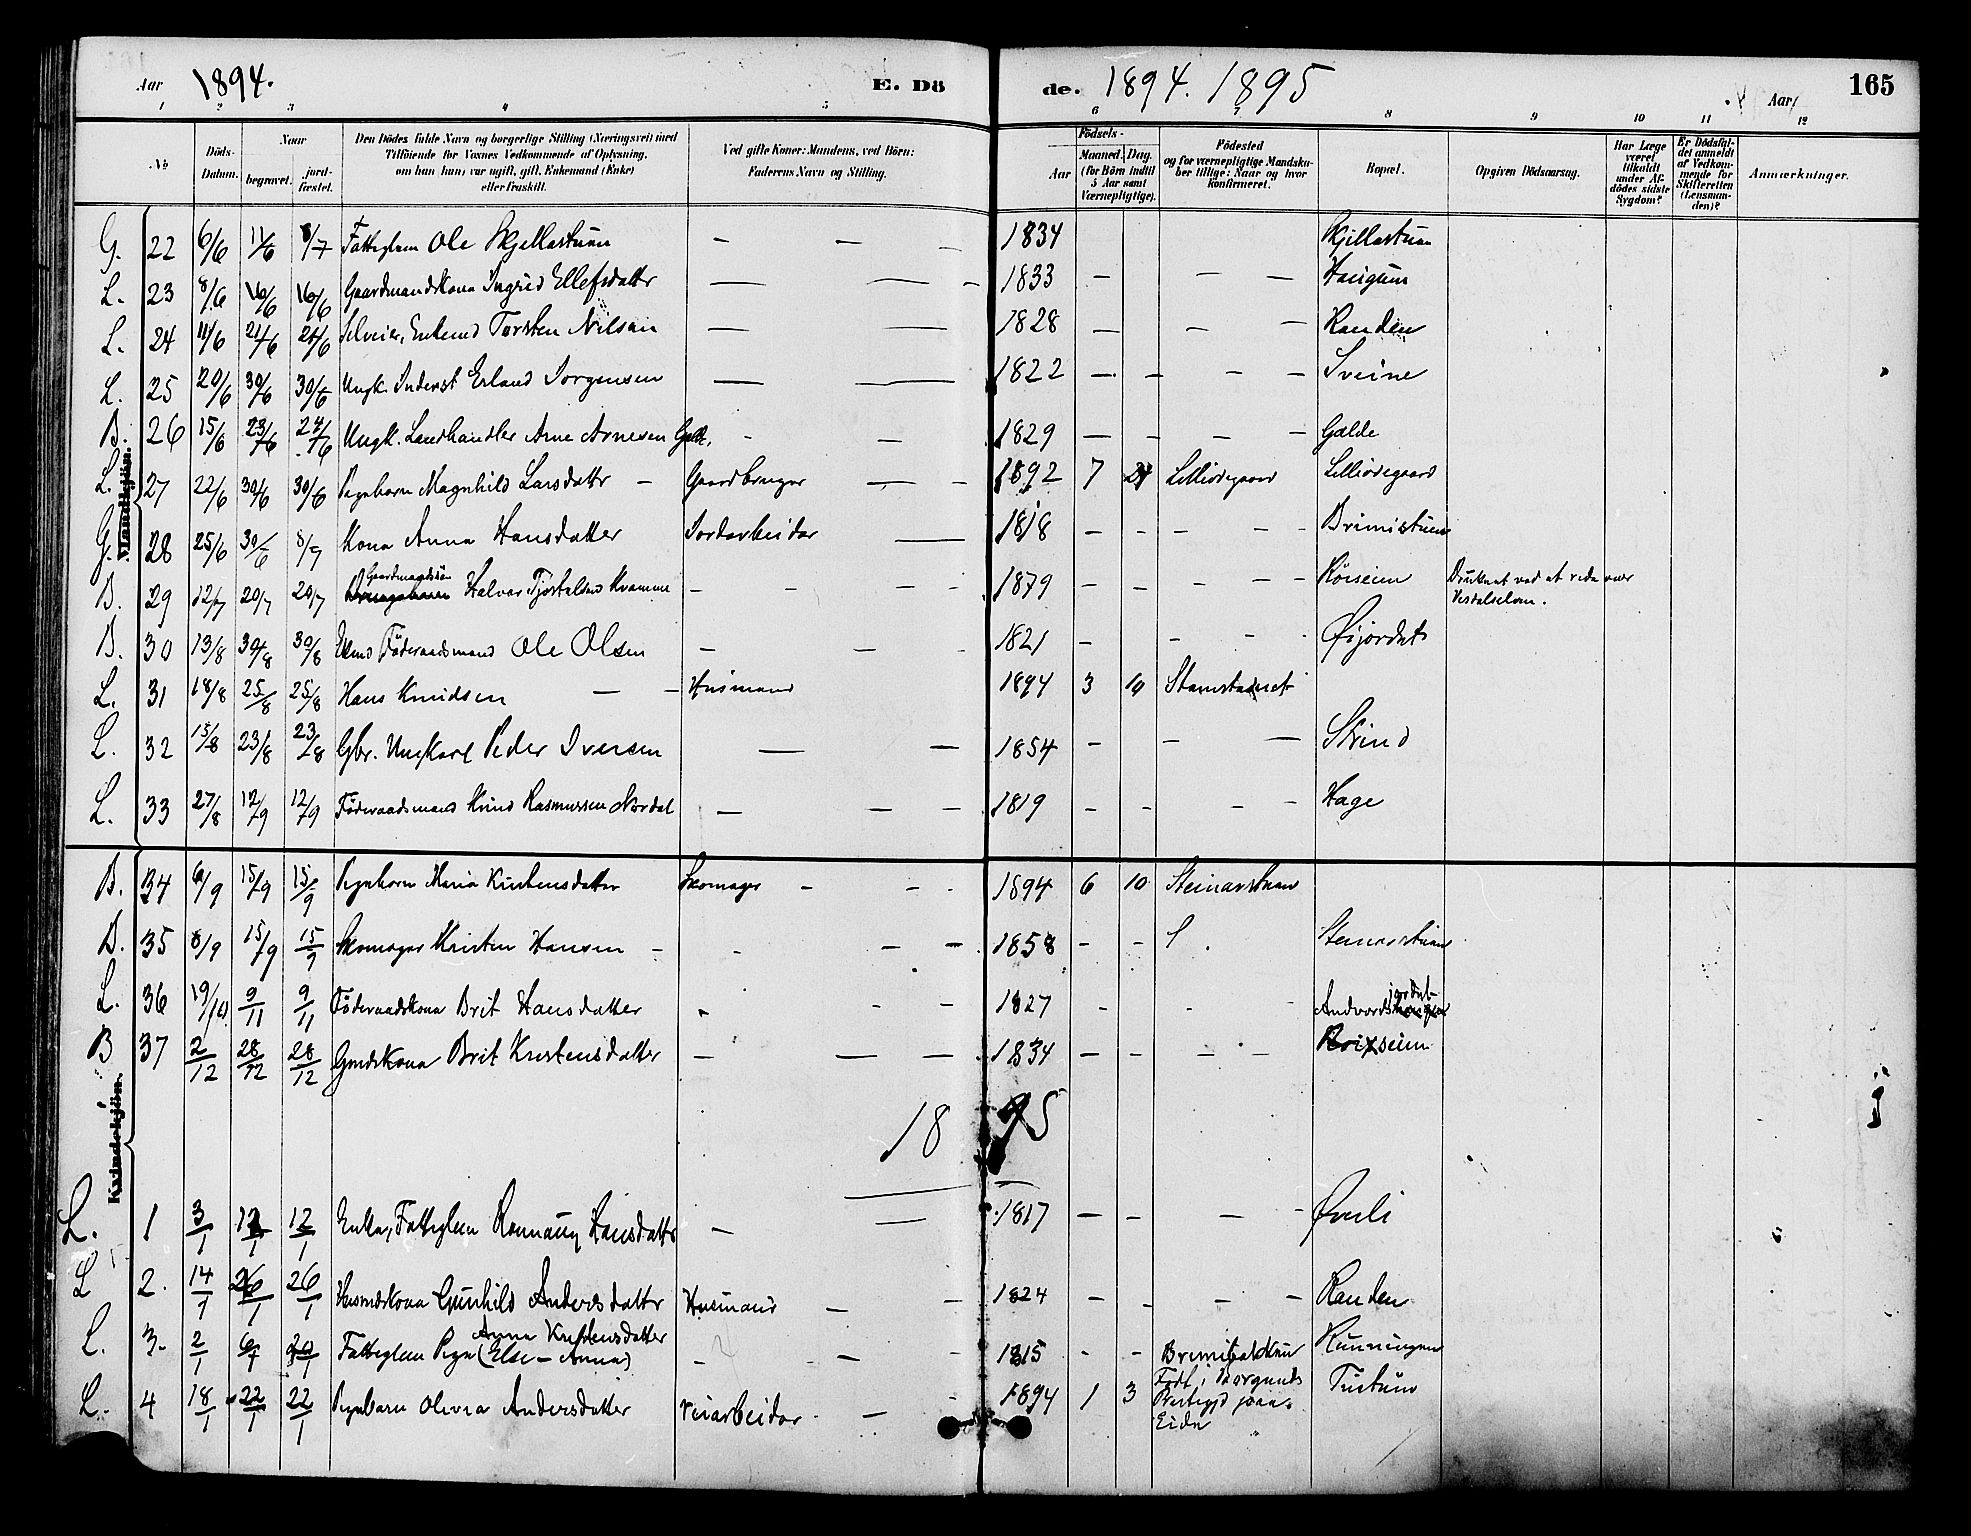 Aar 1894. E. Dö de. 1894. 1895 Aar 165
1 2 3 4 5 6 7 8 9 10 11 12
No Döds-Datum. Naar begravet. jord-fæstet. Den Dödes fulde Navn og borgerlige Stilling (Næringsvei) med Tilföiende for Voxnes Vedkommende af Oplysning, om han (hun) var ugift, gift, Enkemand (Enke) eller fraskilt. Ved gifte Koner: Mandens, ved Börn: Faderens Navn og Stilling. Födsels- Aar Maaned. Dag. (for Börn indtil 5 Aar samt Værnepligtige). Födested og for værnepligtige Mandskaber tillige: Naar og hvor konfirmeret. Bopæl. Opgiven Dödsaarsag. Har Læge været tilkaldt under Afdödes sidste Sygdom? Er Dödsfaldet anmeldt af Vedkommende for Skifteretten (Lensmanden)? Anmærkninger.
Mandkjön.
G. 22 6/6 11/6 8/7 Fatteglem Ole Skjellastuen — — — 1834 Skjellastuen
L. 23 8/6 16/6 16/6 Gaardmandskona Ingrid Ellefsdatter — — — 1833 — — — Haugum
L. 24 11/6 24/6 24/6 Selveier, Enkemd Torsten Nilsen — — 1828 — — — Randen
L. 25 20/6 30/6 30/6 Ungk. Inderst Erland Jorgensen — — 1822 — — — — Sveine
B. 26 15/6 23/6 24/6 Ungk. Landhandler Arne Arnesen Galde. - — 1829 — — — — Galde
L. 27 22/6 30/6 30/6 Pigebarn Magnhild Larsdattr — Gaardbruger — — 1892 7 24 Lilliödegaard Lilliödegaard
G. 28 25/6 30/6 8/7 Kona Anna Hansdatter Jordarbeider — 1818 — — — — Brimistuen
B. 29 12/7 20/7 20/7 Gaardmandssön Halvor Tjostelsen Kvamme — — — 1879 — — — — Röiseim Druknet ved at ride over
Vesdalselven.
B. 30 13/8 30/8 30/8 Ekmd Föderaadsmand Ole Olsen — — — 1821 — — — Öijordet
L. 31 18/8 25/8 25/8 Hans Knudsen — — Husmand 1894 3 19 Stamstadnet
L. 32 15/8 23/8 23/8 Gbr. Ungkarl Peder Iversen — — 1854 — — — Skrind
L. 33 27/8 12/9 12/9 Föderaadsmand Knud Rasmussen Nordal — — — 1819 — — — — Hage
Kvindekjön.
B. 34 6/9 15/9 15/9 Pigebarn Maria Kristensdatter Skomager — — 1894 6 10 Steinarstuen
B. 35 8/9 15/9 15/9 Skomager Kristen Hansen — - — — 1858 — — Steinarstuen
L. 36 19/10 9/11 9/11 Föderaadskona Brit Hansdatter — — — 1827 — — — Andvordsjordet
B 37 2/12 28/12 28/12 Gmdskona Brit Kristensdatter — — — 1834 — — — — Röiseim
1895
L. 1 3/1 12/1 12/1 Enke, Fatteglem Rannaug Hansdattr — — 1817 — — — — Övrli
L 2. 14/1 26/1 26/1 Husmdskona Gunhild Andersdatter Husmand — — 1824 — — — — Randen
L. 3. 2/1 Anna Kristensdatter
Fatteglem Pige (Else — Anna) — — 1815 - — Runningen
L. 4 18/1 22/1 22/1 Pigebarn Olivia Andersdatter Veiarbeider — 1894 1 3 Födt i Borgunds
Prestegjd paa
Eide